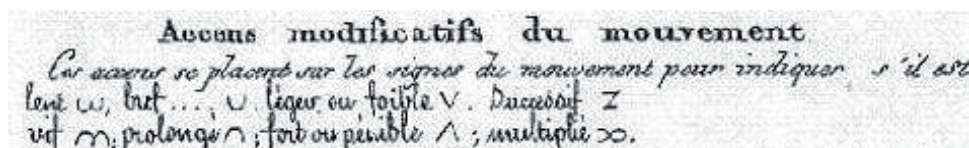 Accens modificatifs du mouvement
Ces accens se placent sur les signes du mouvement pour indiquer, s'il est
lent ω, bref .... ∪ léger ou foible ∨. Successif Z
vif m; prolongé ∩; fort ou pénible ∧; multiplié ∞.